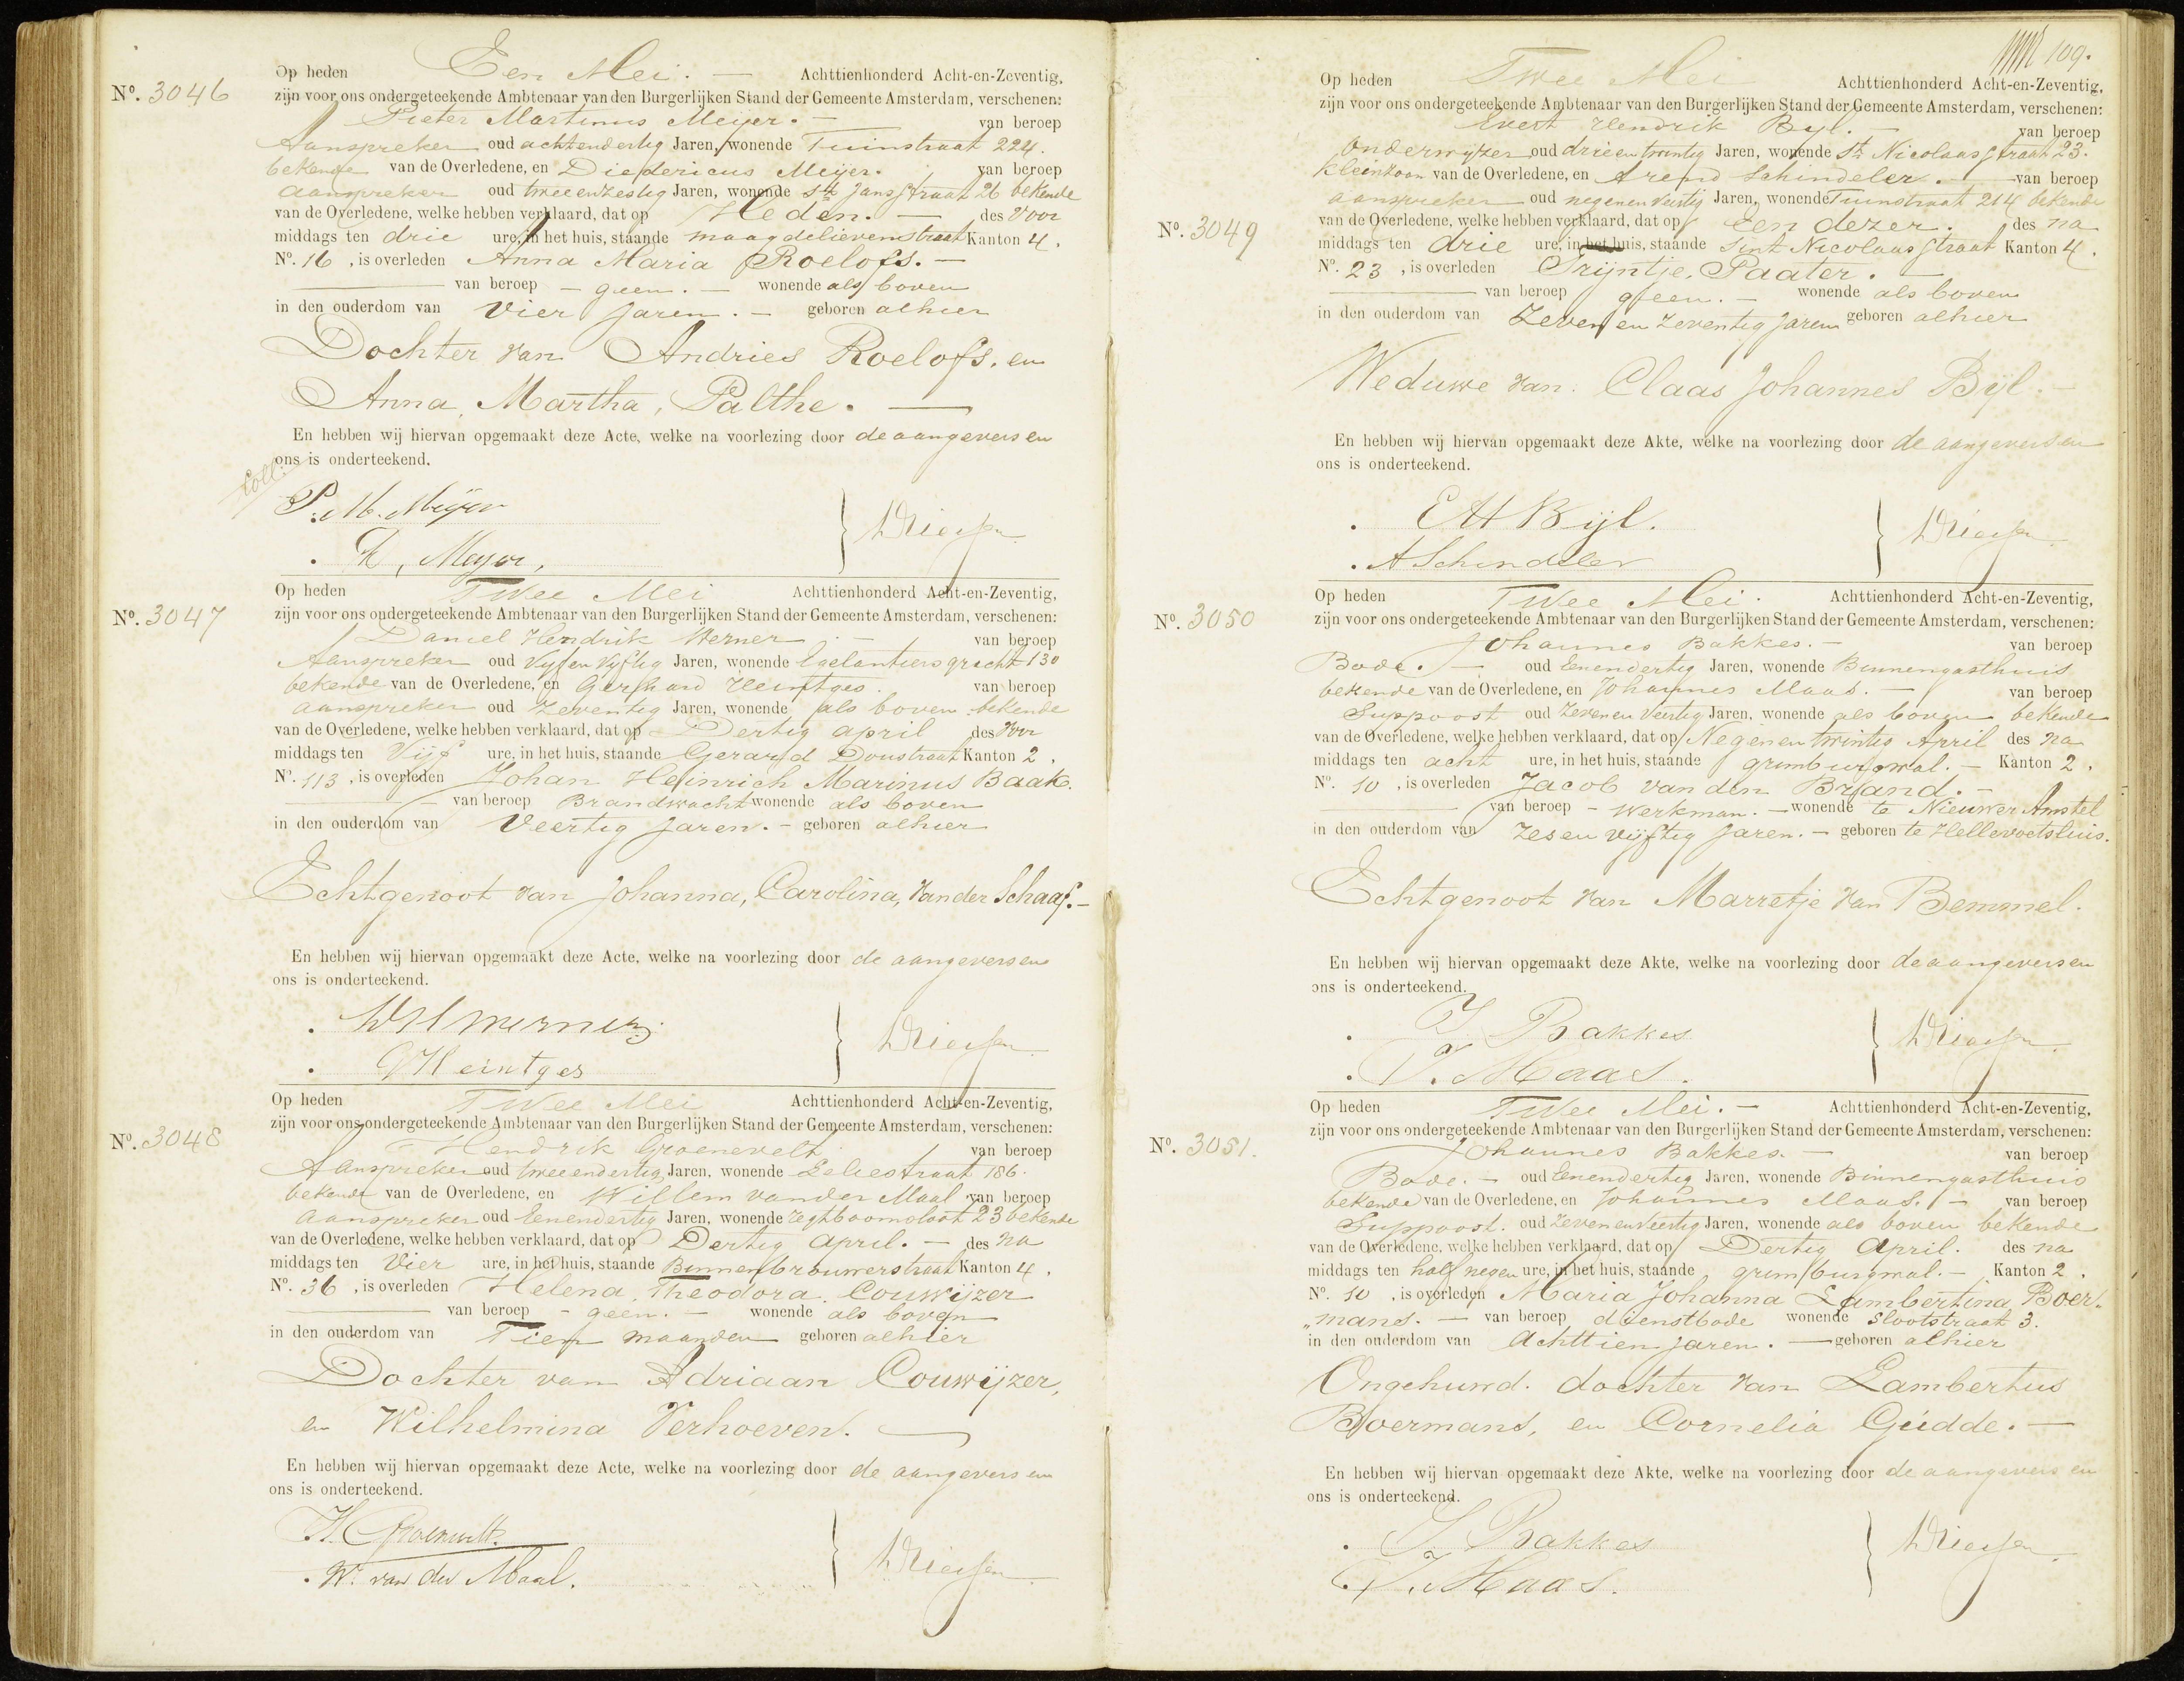 Op heden Een Mei. — Achttienhonderd Acht-en-Zeventig,
No. 3046 zijn voor ons ondergeteekende Ambtenaar van den Burgerlijken Stand der Gemeente Amsterdam, verschenen:
Pieter Martinus Meijer. — van beroep
Aanspreker oud achtendertig Jaren, wonende Tuinstraat 224.
bekende van de Overledene, en Diedericus Meijer. van beroep
aanspreker oud tweeenzestig Jaren, wonende St. Jans straat 26 bekende
van de Overledene, welke hebben verklaard, dat op Heden. — des Voor
middags ten drie ure, in het huis, staande maagdelievenstraat Kanton 4.
No. 16, is overleden Anna Maria Roelofs. —
van beroep — geen. — wonende als boven
in den ouderdom van Vier Jaren. — geboren alhier
Dochter van Andries Roelofs. en
Anna, Martha, Palthe. —
En hebben wij hiervan opgemaakt deze Acte, welke na voorlezing door de aangevers en
ons is onderteekend.
Coll.
P. M. Meijer
D, Meyer,
Op heden Twee Mei Achttienhonderd Acht-en-Zeventig,
No. 3047 zijn voor ons ondergeteekende Ambtenaar van den Burgerlijken Stand der Gemeente Amsterdam, verschenen:
Daniel Hendrik Werner. — van beroep
Aanspreker oud Vijfen Vijftig Jaren, wonende Egelantiersgracht 130
bekende van de Overledene, en Gerhard Heintges. van beroep
aanspreker oud Zeventig Jaren, wonende als boven bekende
van de Overledene, welke hebben verklaard, dat op Dertig april des Voor
middags ten Vijf ure, in het huis, staande Gerard Doustraat Kanton 2,
No. 113, is overleden Johan Heinrich Marinus Baak.
van beroep Brandwacht wonende als boven
in den ouderdom van Veertig Jaren. — geboren alhier
Echtgenoot van Johanna, Carolina, van der Schaaf. —
En hebben wij hiervan opgemaakt deze Acte, welke na voorlezing door de aangevers en
ons is onderteekend.
G Heintges
Op heden Twee Mei Achttienhonderd Acht-en-Zeventig,
No. 3048 zijn voor ons ondergeteekende Ambtenaar van den Burgerlijken Stand der Gemeente Amsterdam, verschenen:
Hendrik Groenevelt van beroep
Aanspreker oud tweeendertig Jaren, wonende Leliestraat 186.
bekende van de Overledene, en Willem van der Maal van beroep
aanspreker oud Eenendertig Jaren, wonende 23 bekende
van de Overledene, welke hebben verklaard, dat op Dertig april. — des na
middags ten Vier ure, in het huis, staande Binnen brouwerstraat Kanton 4,
No. 36, is overleden Helena, Theodora. Couwijzer
van beroep — geen. — wonende als boven
in den ouderdom van Tien maanden geboren alhier
Dochter van Adriaan Couwijzer,
en Wilhelmina Verhoeven. —
En hebben wij hiervan opgemaakt deze Acte, welke na voorlezing door de aangevers en
ons is onderteekend.
H. Groenevelt.
W. van der Maal.
109.
Op heden Twee Mei Achttienhonderd Acht-en-Zeventig,
zijn voor ons ondergeteekende Ambtenaar van den Burgerlijken Stand der Gemeente Amsterdam, verschenen:
Evert Hendrik Byl. — van beroep
Onderwijzer oud drieentwintig Jaren, wonende St. Nicolaas straat 23.
kleinzoon van de Overledene, en Arend Schindeler. — van beroep
aanspreker oud negenenveertig Jaren, wonende Tuinstraat 214 bekende
No. 3049 van de Overledene, welke hebben verklaard, dat op Een dezer. des na
middags ten drie ure, in het huis, staande Sint Nicolaas straat Kanton 4.
No. 23, is overleden Trijntje. Paater. —
van beroep geen. — wonende als boven
in den ouderdom van Zeven en Zeventig Jaren geboren alhier
Weduwe van. Claas Johannes Bijl. —
En hebben wij hiervan opgemaakt deze Akte, welke na voorlezing door de aangevers en
ons is onderteekend.
E H Bijl.
A Schindeler
Op heden Twee Mei. Achttienhonderd Acht-en-Zeventig,
No. 3050 zijn voor ons ondergeteekende Ambtenaar van den Burgerlijken Stand der Gemeente Amsterdam, verschenen:
Johannes Bakkes. — van beroep
Bode. — oud Eenendertig Jaren, wonende Binnengasthuis
bekende van de Overledene, en Johannes Maas. — van beroep
Suppoost oud Zevenen Veertig Jaren, wonende als boven bekende
van de Overledene, welke hebben verklaard, dat op Negenentwintig April des na
middags ten acht ure, in het huis, staande grimburgwal. — Kanton 2,
No. 10, is overleden Jacob van den Brand. —
van beroep — Werkman. — wonende te Nieuwer Amstel
in den ouderdom van Zesen vijftig Jaren. — geboren te Hellevoetsluis.
Echtgenoot van Marretje van Bemmel.
En hebben wij hiervan opgemaakt deze Akte, welke na voorlezing door de aangevers en
ons is onderteekend.
J. Bakkes
J. Maas.
Op heden Twee Mei. — Achttienhonderd Acht-en-Zeventig,
No. 3051. zijn voor ons ondergeteekende Ambtenaar van den Burgerlijken Stand der Gemeente Amsterdam, verschenen:
Johannes Bakkes. — van beroep
Bode. — oud Eenendertig Jaren, wonende Binnengasthuis
bekende van de Overledene, en Johannes Maas. — van beroep
Suppoost. oud Zevenenveertig Jaren, wonende als boven bekende
van de Overledene, welke hebben verklaard, dat op Dertig April. des na
middags ten half negen ure, in het huis, staande grimburgwal. — Kanton 2,
No. 10, is overleden Maria Johanna Lambertina Boer„
„mans. — van beroep dienstbode wonende Slootstraat 3.
in den ouderdom van Achttien Jaren. — geboren alhier
Ongehuwd. dochter van Lambertus
Boermans, en Cornelia Gidde. —
En hebben wij hiervan opgemaakt deze Akte, welke na voorlezing door de aangevers en
ons is onderteekend.
J. Bakkes
J. Maas.